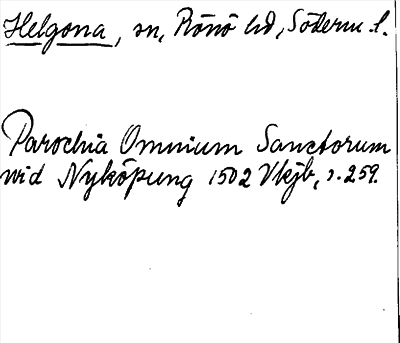 Helgona, sn, Rönö hd, Söderm l.
Parochia Omnium Sanctorum
wid Nyköpung 1502 Vkjb, s. 259.